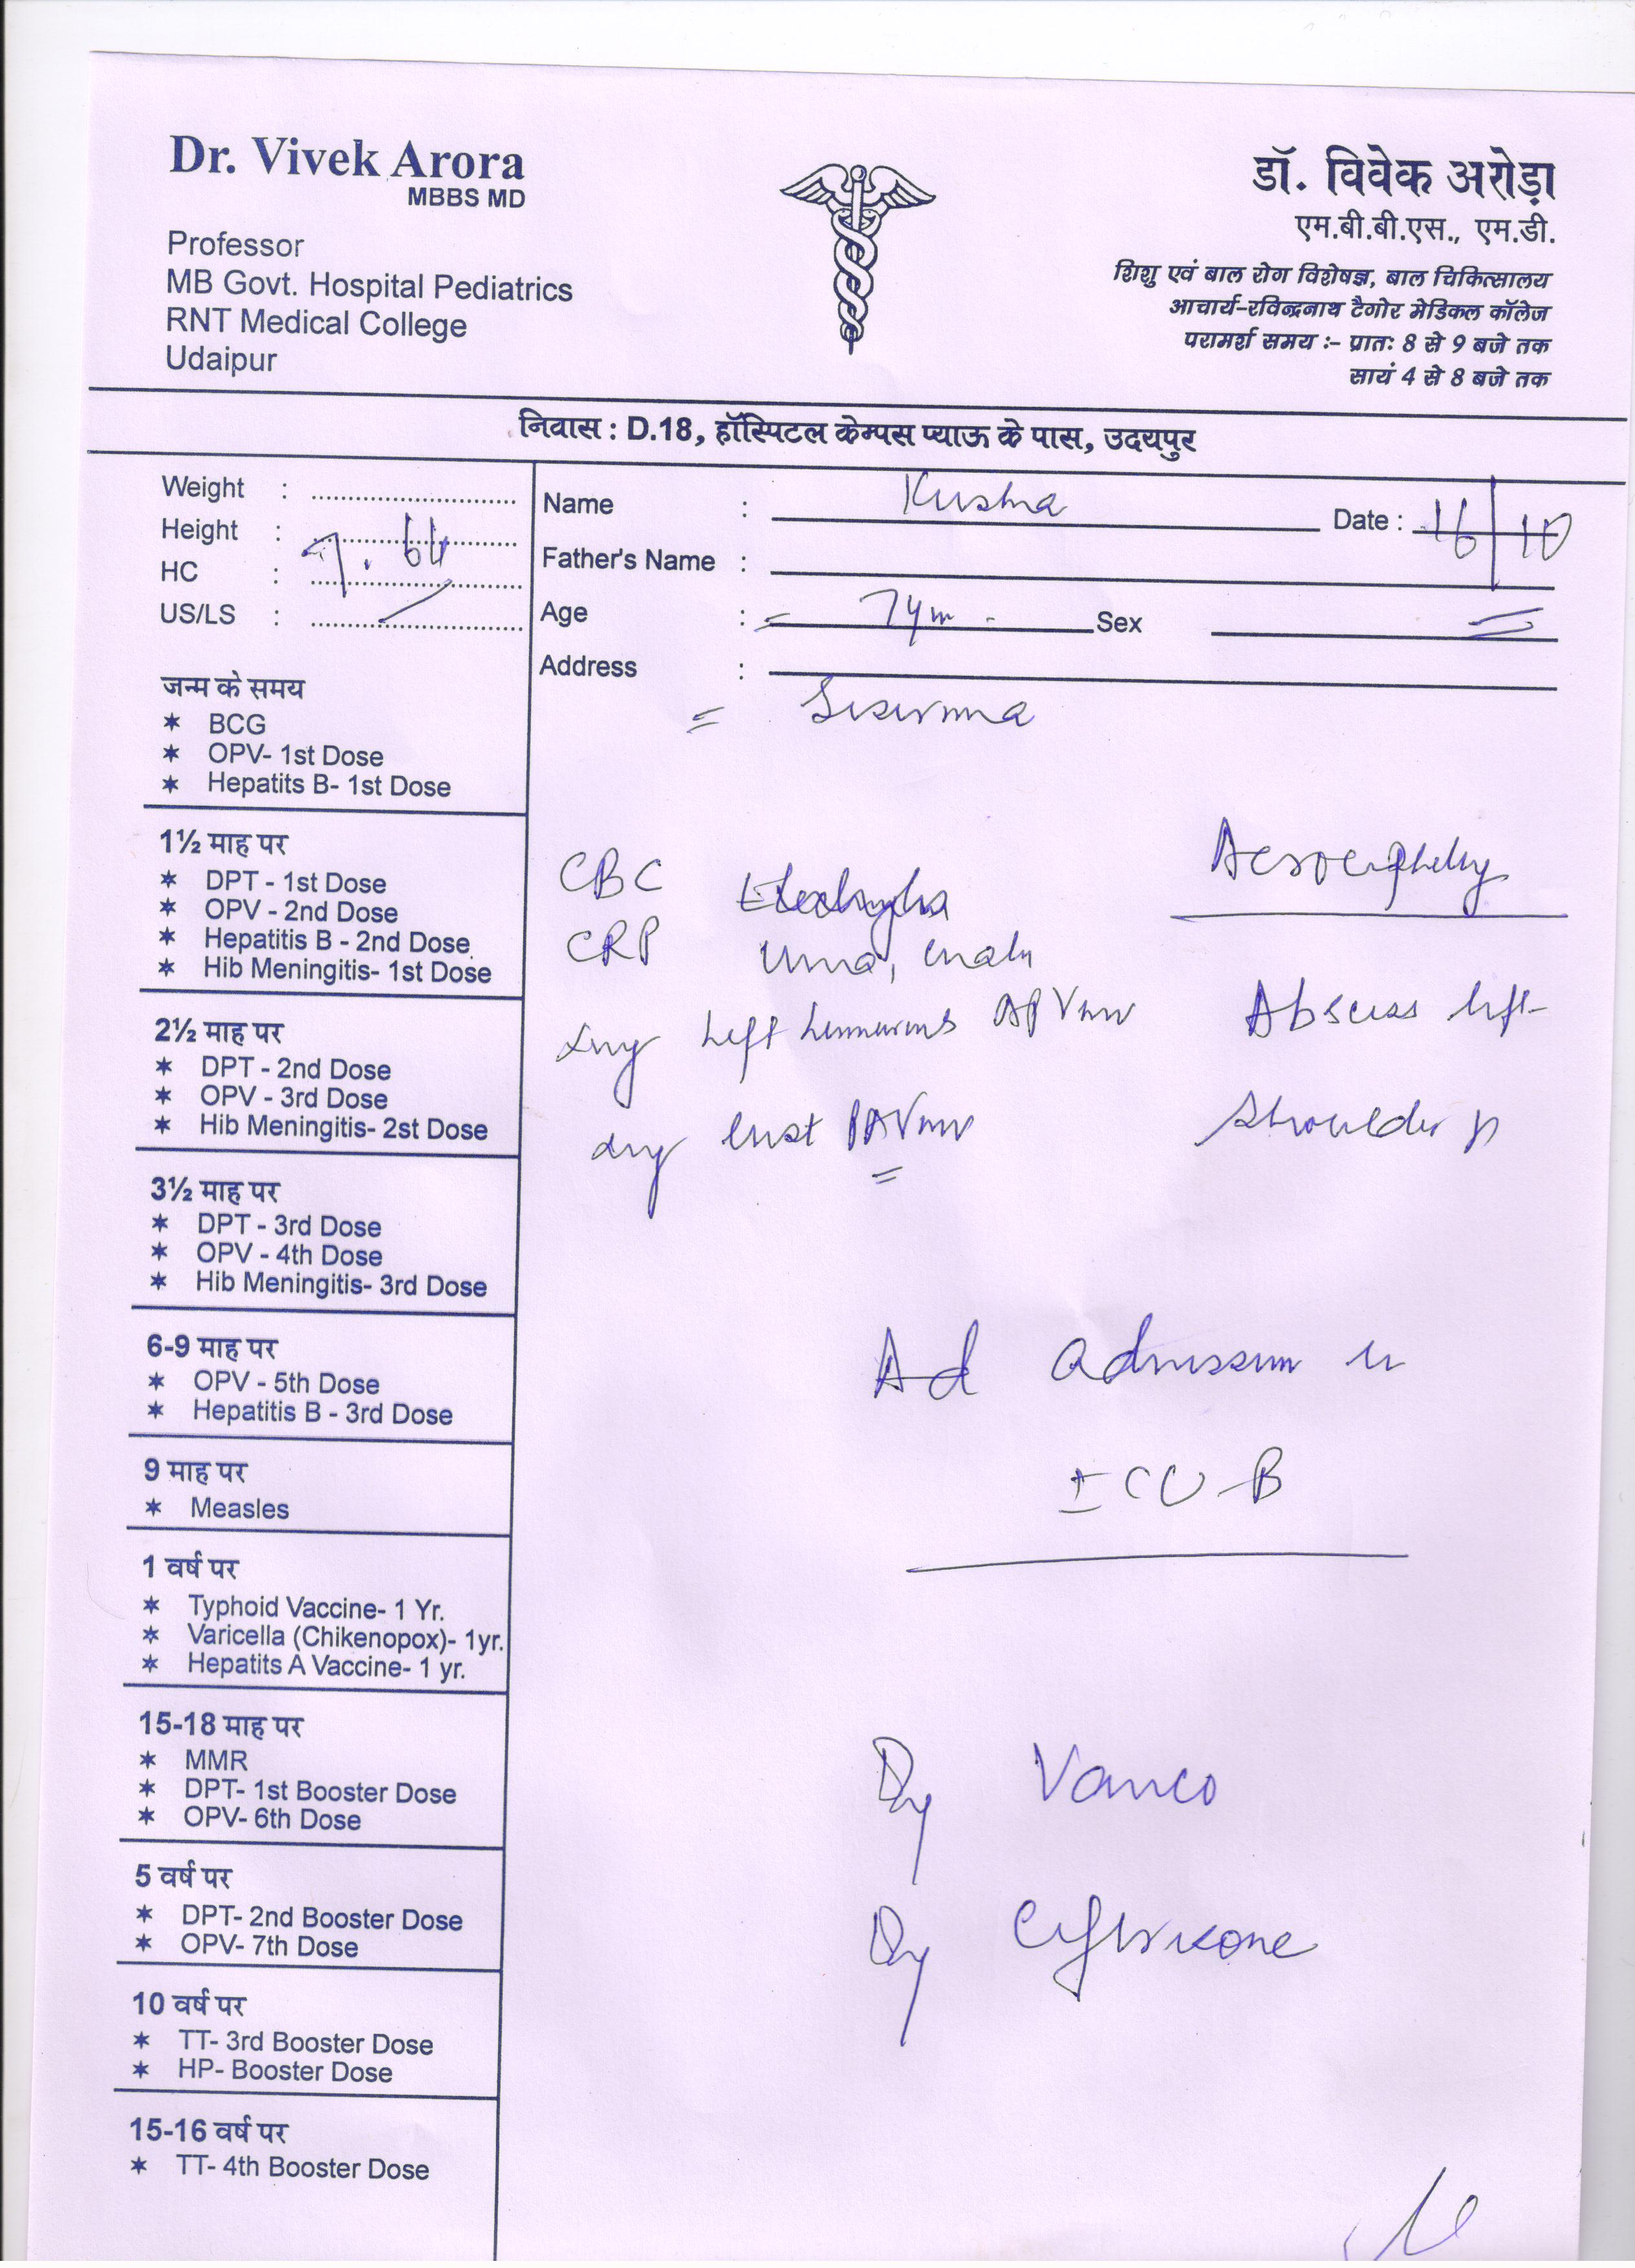 Dr. Vivek Arora
MBBS MD
Professor
MB Govt. Hospital Pediatrics
RNT Medical College
Udaipur
डॉ. विवेक अरोड़ा
एम.बी.बी.एस., एम.डी.
शिशु एवं बाल रोग विशेषज्ञ, बाल चिकित्सालय
आचार्य-रविन्द्रनाथ टैगोर मेडिकल कॉलेज
परामर्श समय :- प्रातः 8 से 9 बजे तक
सायं 4 से 8 बजे तक
निवास : D.18, हॉस्पिटल केम्पस प्याऊ के पास, उदयपुर
Weight :
Height :
HC :
US/LS :
Name : Date : 16/10
Father's Name :
Age : Sex
Address :
जन्म के समय
* BCG
* OPV- 1st Dose
* Hepatits B- 1st Dose
1½ माह पर
* DPT - 1st Dose
* OPV - 2nd Dose
* Hepatitis B - 2nd Dose
* Hib Meningitis- 1st Dose
2½ माह पर
* DPT - 2nd Dose
* OPV - 3rd Dose
* Hib Meningitis- 2st Dose
3½ माह पर
* DPT - 3rd Dose
* OPV - 4th Dose
* Hib Meningitis- 3rd Dose
6-9 माह पर
* OPV - 5th Dose
* Hepatitis B - 3rd Dose
9 माह पर
* Measles
1 वर्ष पर
* Typhoid Vaccine- 1 Yr.
* Varicella (Chikenopox)- 1yr.
* Hepatits A Vaccine- 1 yr.
15-18 माह पर
* MMR
* DPT- 1st Booster Dose
* OPV- 6th Dose
5 वर्ष पर
* DPT- 2nd Booster Dose
* OPV- 7th Dose
10 वर्ष पर
* TT- 3rd Booster Dose
* HP- Booster Dose
15-16 वर्ष पर
* TT- 4th Booster Dose
CBC
CRP
Left
Abscess left
shoulder
Ad admission
ICU-B
Vanco